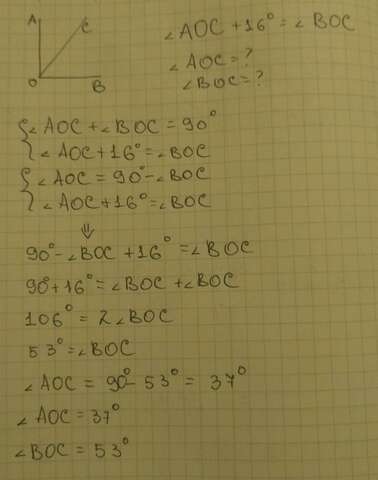 A
C
O
B
∠AOC + 16° = ∠BOC
∠AOC = ?
∠BOC = ?
{ ∠AOC + ∠BOC = 90°
∠AOC + 16° = ∠BOC
{ ∠AOC = 90° - ∠BOC
∠AOC + 16° = ∠BOC
⇓
90° - ∠BOC + 16° = ∠BOC
90° + 16° = ∠BOC + ∠BOC
106° = 2∠BOC
53° = ∠BOC
∠AOC = 90° - 53° = 37°
∠AOC = 37°
∠BOC = 53°